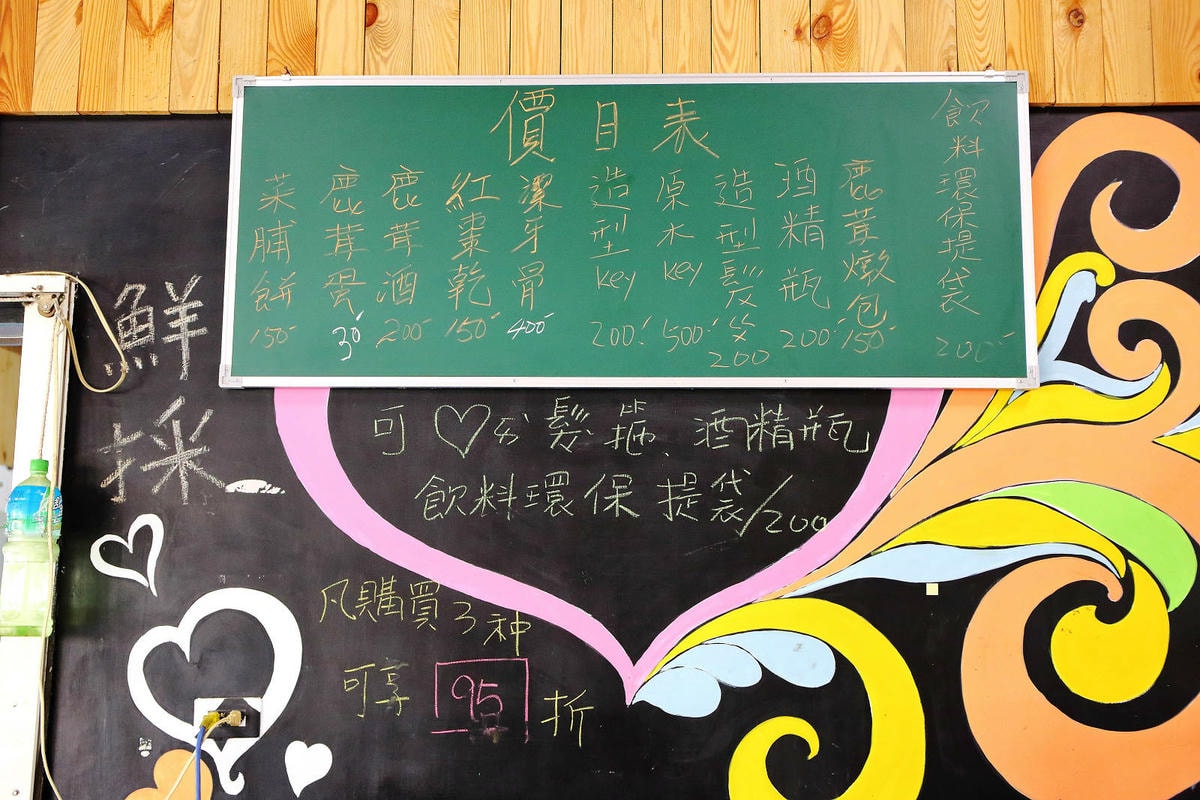 價目表
菜脯餅 150
鹿茸蛋 30
鹿茸酒 200
紅棗乾 150
潔牙骨 400
造型key 200
原木key 500
造型髮 200
酒精瓶 200
鹿茸燉包 150
飲料環保提袋 200
鮮採
可♡ 髮箍、酒精瓶
飲料環保提袋/200
凡購買3种
可享 95 折